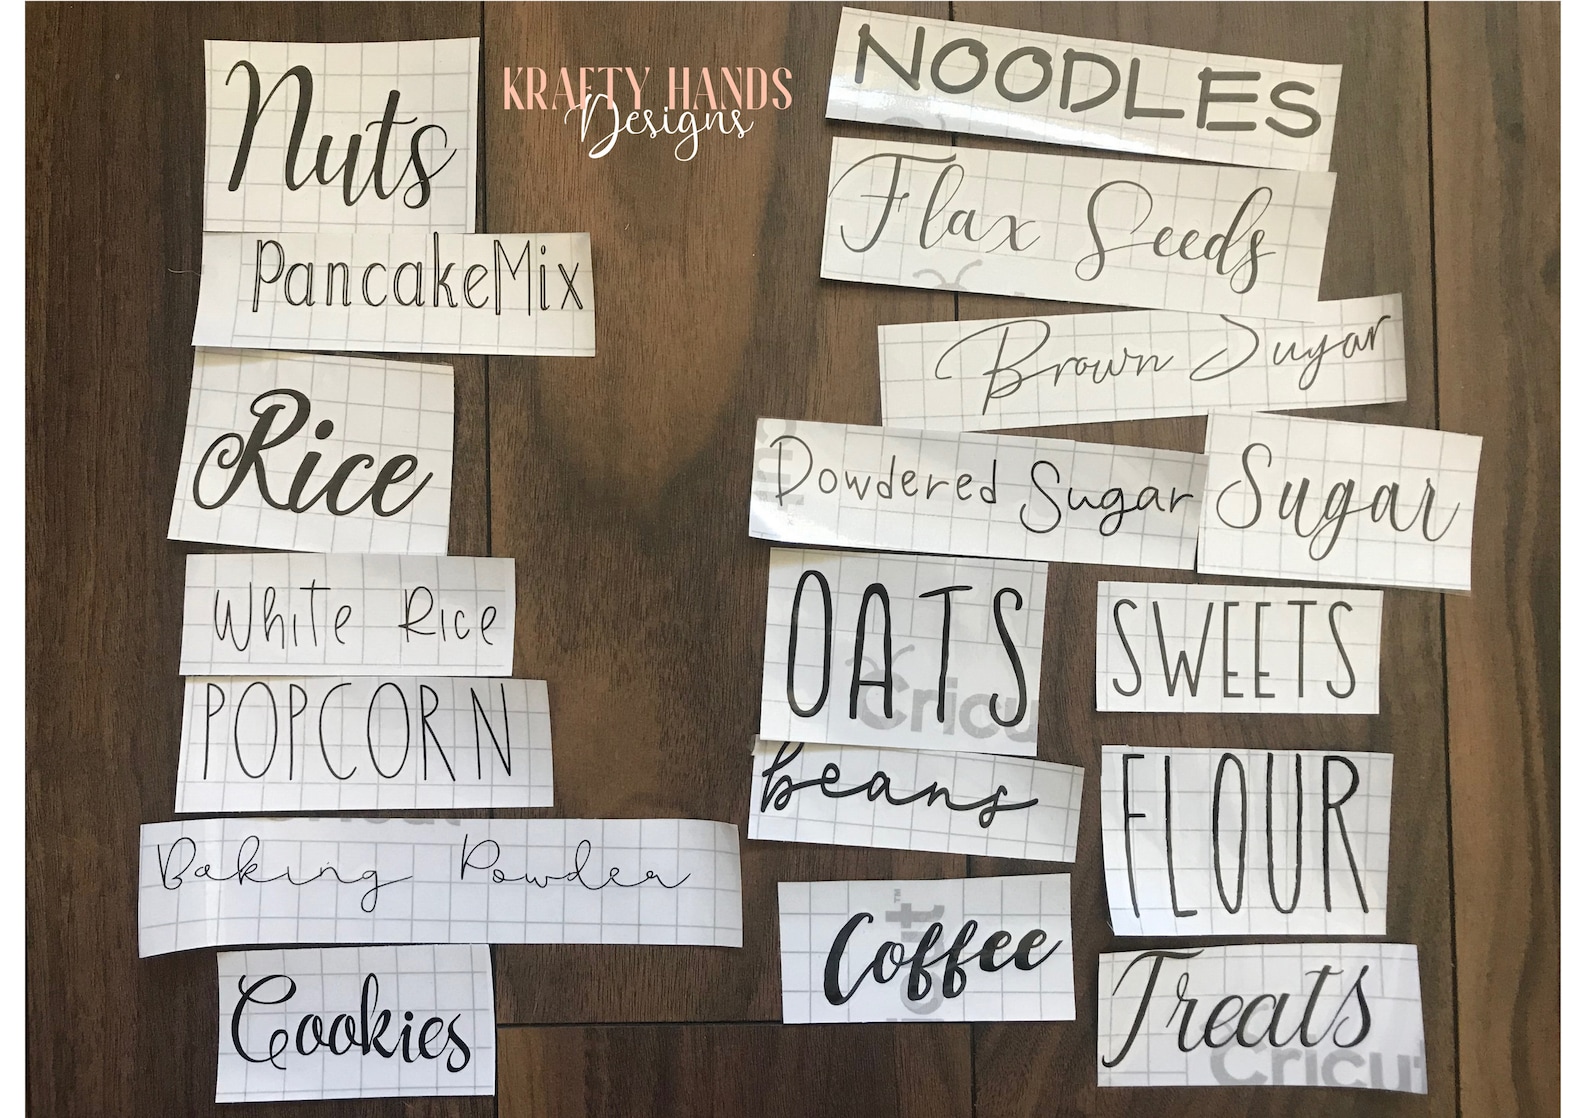 Nuts
PancakeMix
Rice
White Rice
POPCORN
Baking Powder
Cookies
KRAFTY HANDS
Designs
NOODLES
Flax Seeds
Brown Sugar
Powdered Sugar
Sugar
OATS
Cricut
SWEETS
beans
FLOUR
Coffee
Treats
Cricut